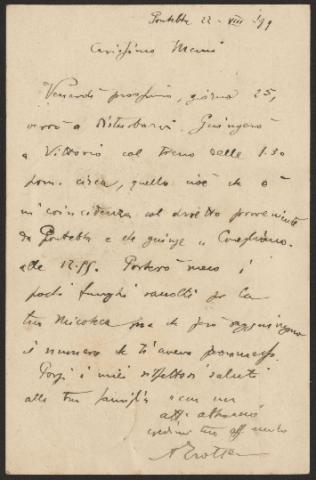 Pontebba 22-VIII 99
Carissimo Menni
Venerdì prossimo, giorno 25,
verrò a disturbarvi. Giungerò
a Vittorio col treno delle 1.30
pom. circa, quello cioè che è
in coincidenza col diretto proveniente
da Pontebba e che giunge a Conegliano
alle 12.55. Porterò meco i
pochi funghi raccolti per la
tua Micoteca ma che però raggiungono
il numero che ti avevo promesso.
Porgi i miei rispettosi saluti
alla tua famiglia e con un
aff. abbraccio
credimi tuo aff.
A Trotter